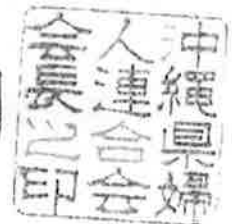 沖縄県婦
人連合会
会長之印